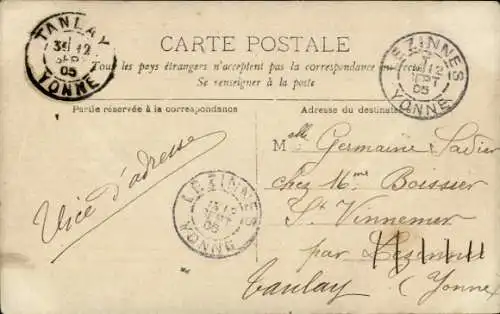 TANLAY
3E 12
SEPT
05
YONNE
CARTE POSTALE
Tous les pays étrangers n'acceptent pas la correspondance au recto
Se renseigner à la poste
LEZINNES
12
SEPT
05
YONNE
Partie réservée à la correspondance
Adresse du destinataire
Vice d'adresse
LEZINNES
12
SEPT
05
YONNE
Melle Germaine Sadier
chez Mme Boissier
St Vinnemer
par Lezinnes
Tanlay (Yonne